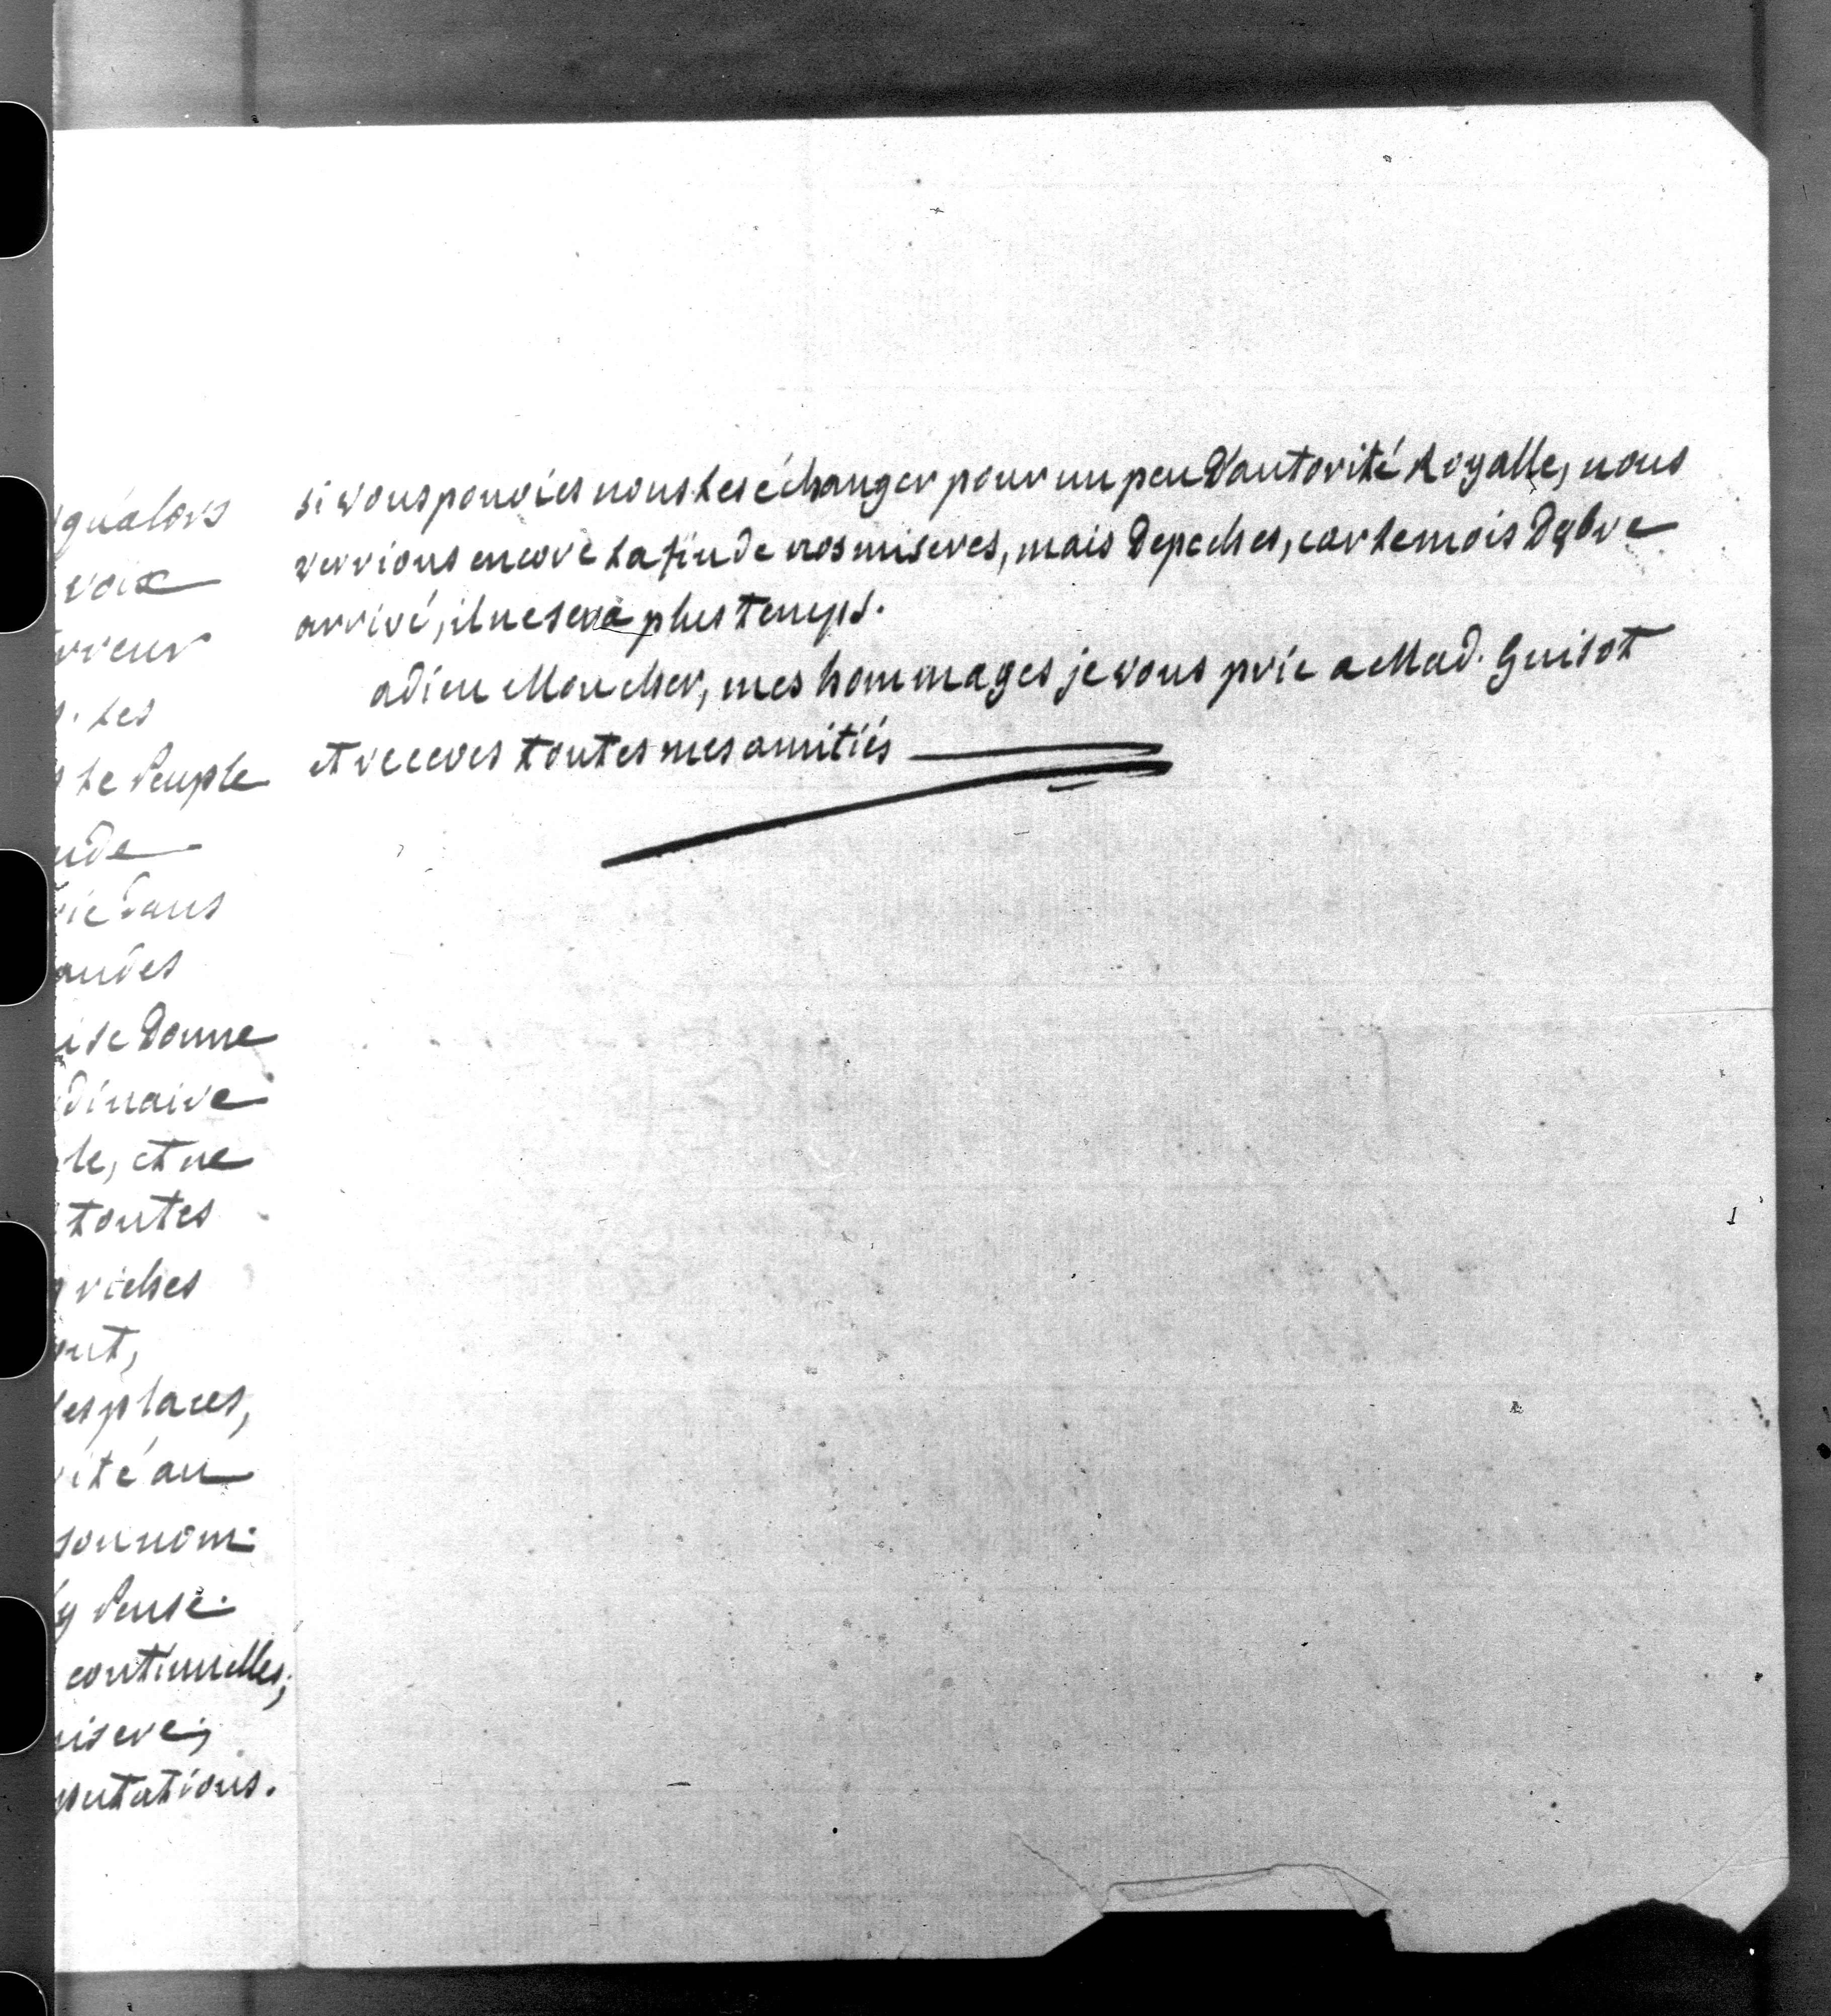 qu'alors
voix
rreur
. les
le Peuple
nde
vie dans
andes
ise donne
dinaire
le, et ne
toutes
riches
ont,
les places,
rité au
son nom.
y Pense.
continuelles;
misere;
putations.
si vous pouviés nous les échanger pour un peu d'autorité Royalle, nous
verrions encore la fin de nos miseres, mais depeches, car le mois d'9bre
arrivé, il ne sera plus temps.
adieu Mon cher, mes hommages je vous prie a Mad. Guisot
et receves toutes mes amitiés